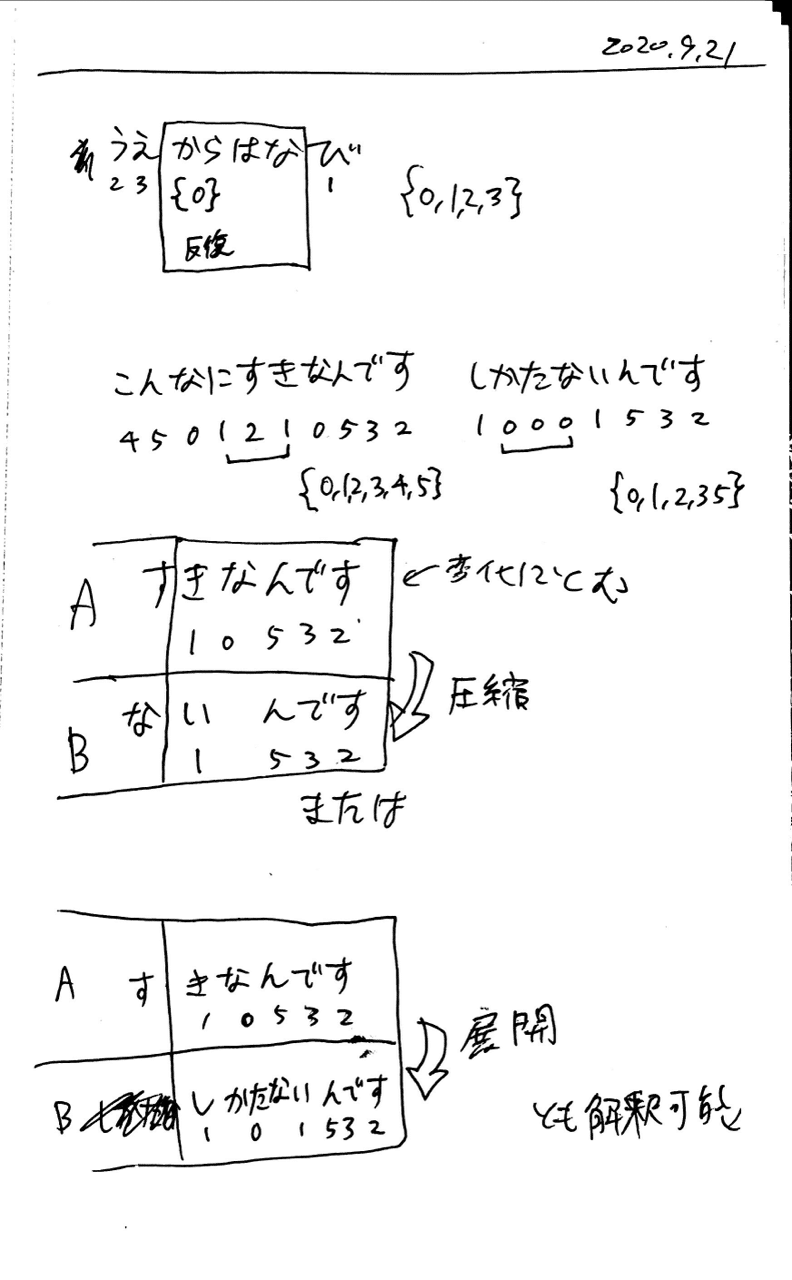 2020.9.21
うえからはなび
2 3 {0} 1 {0,1,2,3}
反復
こんなにすきなんです しかたないんです
4 5 0 1 2 1 0 5 3 2 1 0 0 0 1 5 3 2
{0,1,2,3,4,5} {0,1,2,3 5}
A すきなんです ← 変化にとむ
1 0 5 3 2
圧縮
B ない んです
1 5 3 2
または
A すきなんです
1 0 5 3 2
展開
B しかたないんです
1 0 1 5 3 2
とも解釈可能